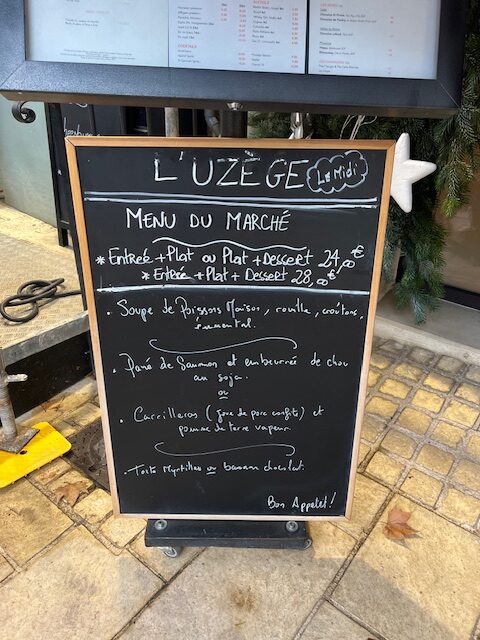 L'UZÈGE Le Midi
MENU DU MARCHÉ
* Entreé + Plat ou Plat + Dessert 24,00€
* Entreé + Plat + Dessert 28,00€
. Soupe de Poissons Maison, rouille, croûtons,
emmental.
. Pavé de Saumon et embeurrée de chou
au soja.
ou
. Carrilleras (joue de porc confite) et
pomme de terre vapeur.
. Tarte Myrtilles ou banane chocolat.
Bon Appetit!